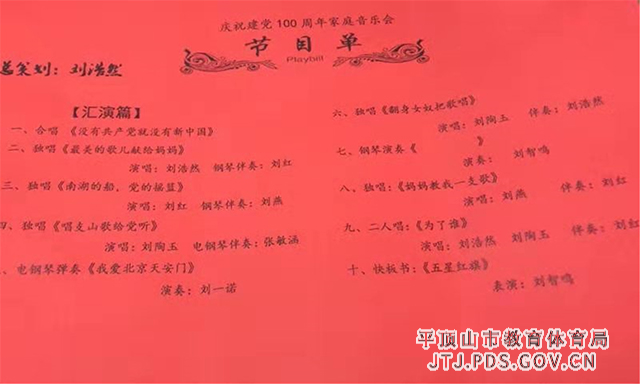 庆祝建党100周年家庭音乐会
节目单
Playbill
总策划：刘浩然
【汇演篇】
一、合唱 《没有共产党就没有新中国》
二、独唱《最美的歌儿献给妈妈》
演唱：刘浩然 钢琴伴奏：刘红
三、独唱《南湖的船，党的摇篮》
演唱：刘红 钢琴伴奏：刘燕
四、独唱《唱支山歌给党听》
演唱：刘陶玉 电钢琴伴奏：张敏涵
、电钢琴弹奏《我爱北京天安门》
演奏：刘一诺
六、独唱《翻身女奴把歌唱》
演唱：刘陶玉 伴奏：刘浩然
七、钢琴演奏《 》
演奏： 刘智鸣
八、独唱：《妈妈教我一支歌》
演唱：刘燕 伴奏：刘红
九、二人唱：《为了谁》
演唱：刘浩然 刘陶玉 伴奏：刘红
十、快板书：《五星红旗》
表演：刘智鸣
平顶山市教育体育局
JTJ.PDS.GOV.CN